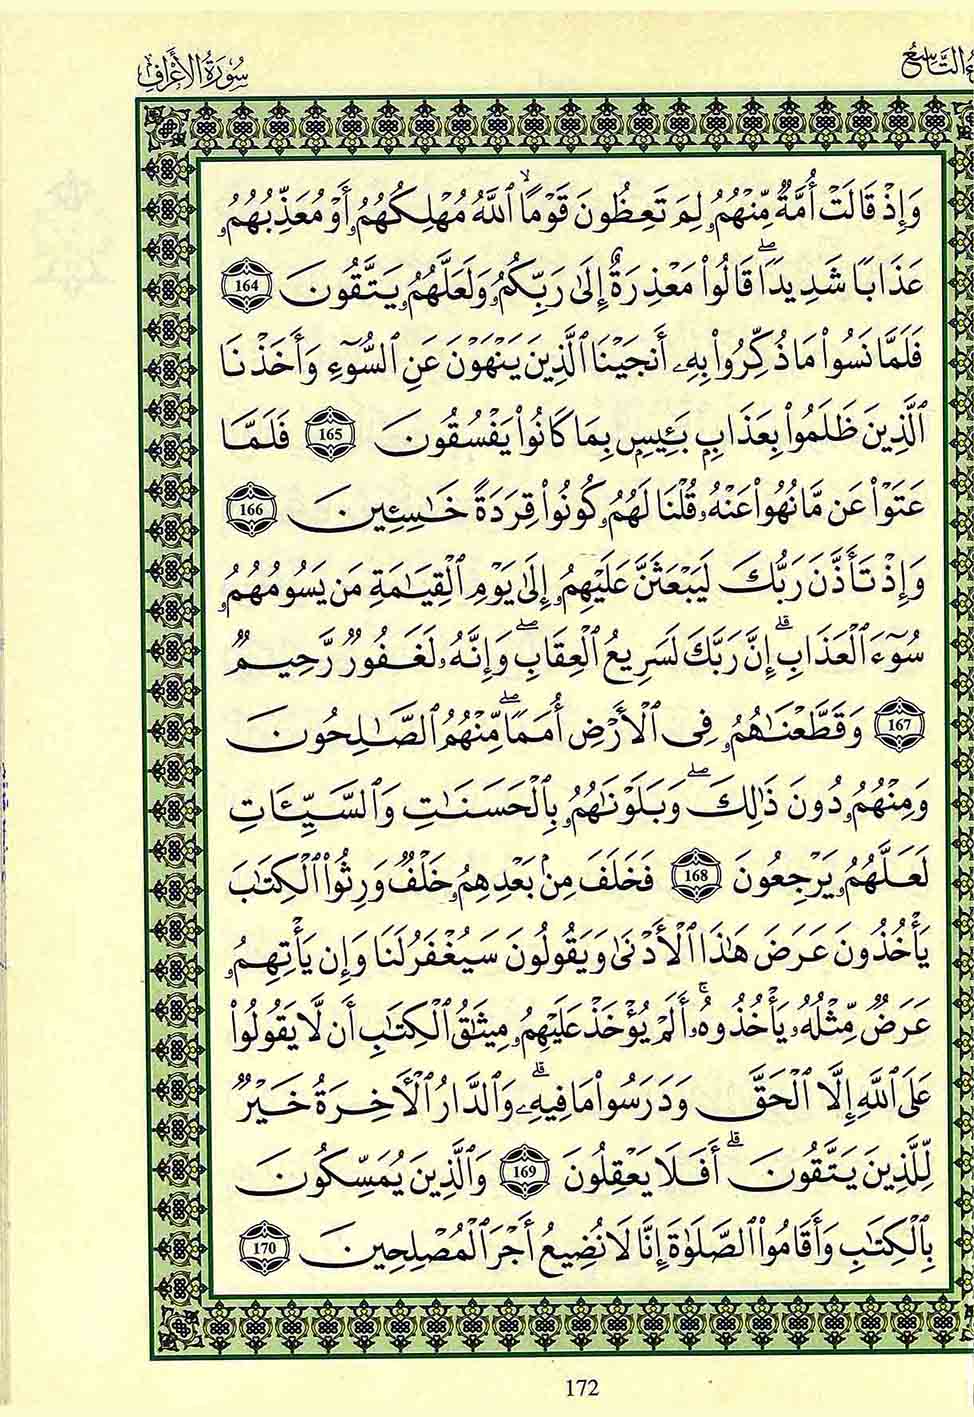 سُورَةُ الْأَعْرَافِ
التَّاسِعُ
وَإِذْ قَالَتْ أُمَّةٌ مِّنْهُمُۥ لِمَ تَعِظُونَ قَوْمًا ۙ ٱللَّهُ مُهْلِكُهُمُۥٓ أَوْ مُعَذِّبُهُمُۥ
عَذَابًا شَدِيدًا ۖ قَالُوا۟ مَعْذِرَةٌ إِلَىٰ رَبِّكُمُۥ وَلَعَلَّهُمُۥ يَتَّقُونَ 164
فَلَمَّا نَسُوا۟ مَا ذُكِّرُوا۟ بِهِۦٓ أَنجَيْنَا ٱلَّذِينَ يَنْهَوْنَ عَنِ ٱلسُّوٓءِ وَأَخَذْنَا
ٱلَّذِينَ ظَلَمُوا۟ بِعَذَابٍۭ بَـِٔيسٍۭ بِمَا كَانُوا۟ يَفْسُقُونَ 165 فَلَمَّا
عَتَوْا۟ عَن مَّا نُهُوا۟ عَنْهُۥ قُلْنَا لَهُمُۥ كُونُوا۟ قِرَدَةً خَٰسِـِٔينَ 166
وَإِذْ تَأَذَّنَ رَبُّكَ لَيَبْعَثَنَّ عَلَيْهِمُۥٓ إِلَىٰ يَوْمِ ٱلْقِيَٰمَةِ مَن يَسُومُهُمُۥ
سُوٓءَ ٱلْعَذَابِ ۗ إِنَّ رَبَّكَ لَسَرِيعُ ٱلْعِقَابِ ۖ وَإِنَّهُۥ لَغَفُورٌ رَّحِيمٌ
167 وَقَطَّعْنَٰهُمُۥ فِى ٱلْأَرْضِ أُمَمًا ۖ مِّنْهُمُ ٱلصَّٰلِحُونَ
وَمِنْهُمُۥ دُونَ ذَٰلِكَ ۖ وَبَلَوْنَٰهُمُۥ بِٱلْحَسَنَٰتِ وَٱلسَّيِّـَٔاتِ
لَعَلَّهُمُۥ يَرْجِعُونَ 168 فَخَلَفَ مِنۢ بَعْدِهِمُۥ خَلْفٌ وَرِثُوا۟ ٱلْكِتَٰبَ
يَأْخُذُونَ عَرَضَ هَٰذَا ٱلْأَدْنَىٰ وَيَقُولُونَ سَيُغْفَرُ لَنَا وَإِن يَأْتِهِمُۥ
عَرَضٌ مِّثْلُهُۥ يَأْخُذُوهُۥ ۚ أَلَمْ يُؤْخَذْ عَلَيْهِمُۥ مِيثَٰقُ ٱلْكِتَٰبِ أَن لَّا يَقُولُوا۟
عَلَى ٱللَّهِ إِلَّا ٱلْحَقَّ وَدَرَسُوا۟ مَا فِيهِۦ ۗ وَٱلدَّارُ ٱلْأَخِرَةُ خَيْرٌ
لِّلَّذِينَ يَتَّقُونَ ۗ أَفَلَا يَعْقِلُونَ 169 وَٱلَّذِينَ يُمَسِّكُونَ
بِٱلْكِتَٰبِ وَأَقَامُوا۟ ٱلصَّلَوٰةَ إِنَّا لَا نُضِيعُ أَجْرَ ٱلْمُصْلِحِينَ 170
172